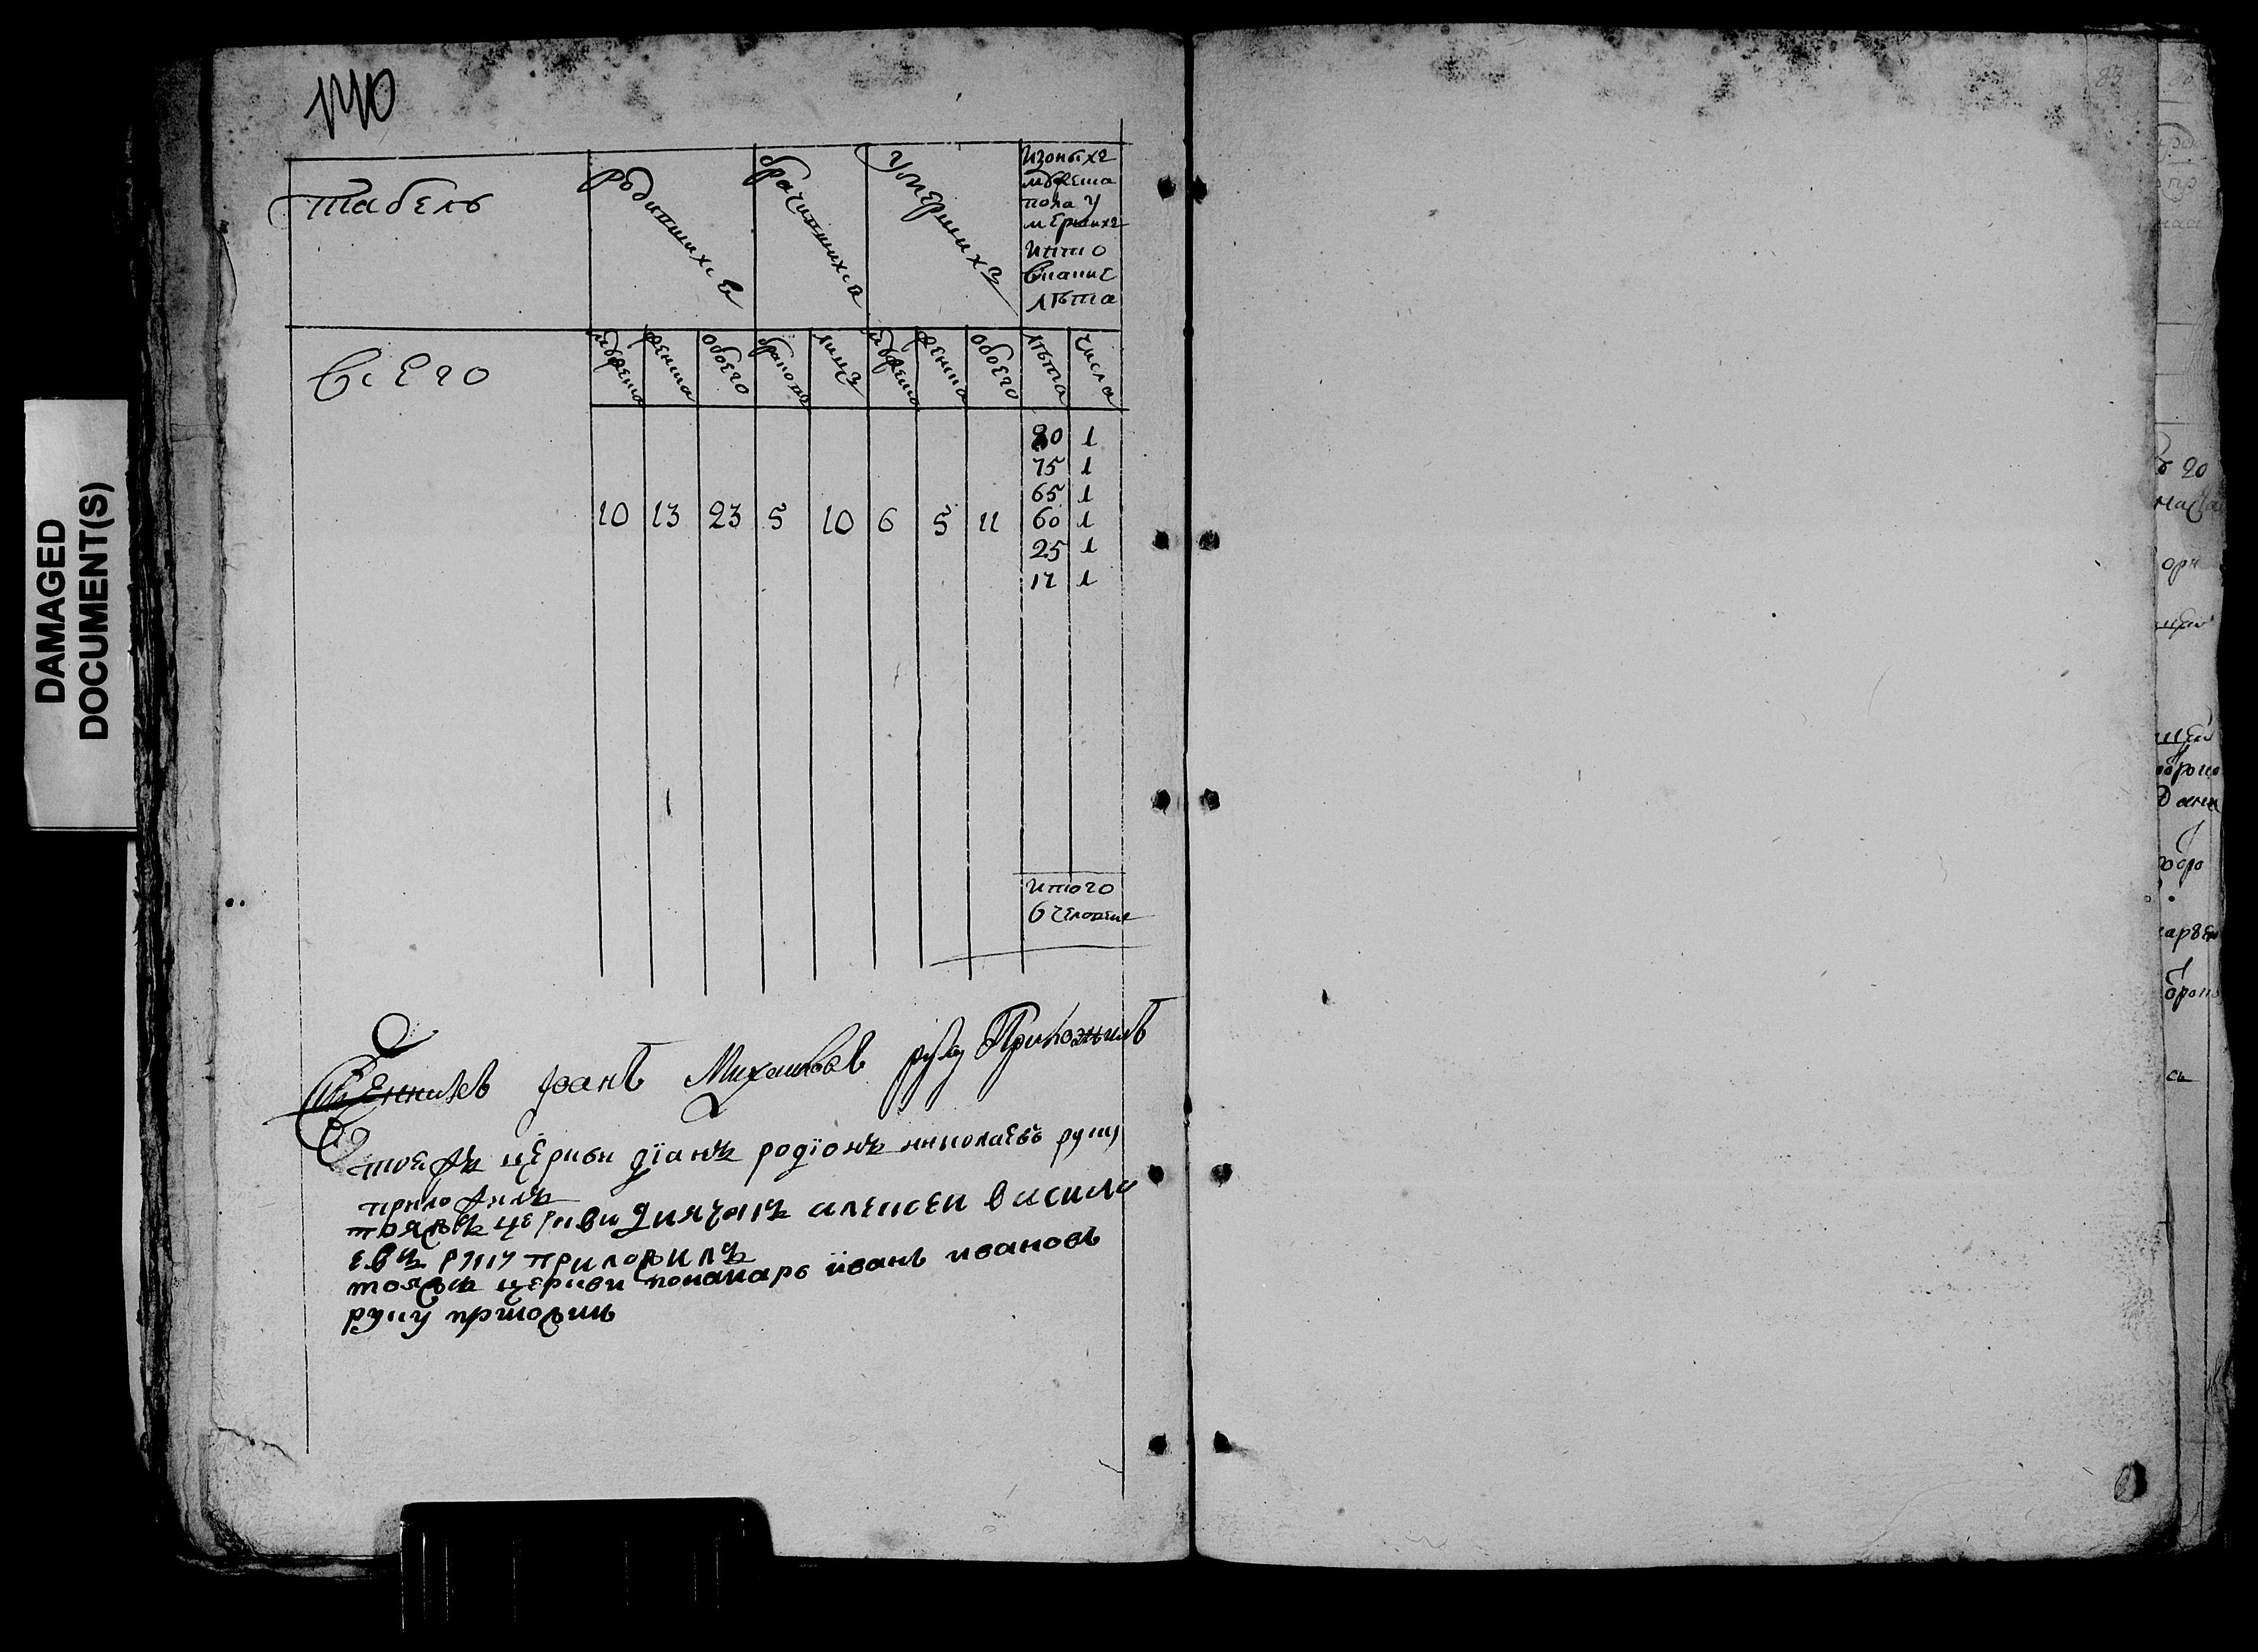 DAMAGED
DOCUMENT(S)
140
83
Табель
Родившихся
брачившихся
Умерших
изоных
мужеска
пола у
мерших
кто
в какие
лѣта
Всего
мужеска
женска
обоего
браковъ
лицъ
мужеска
женска
обоего
лѣта
числа
80 1
75 1
65 1
10 13 23 5 10 6 5 11 60 1
25 1
17 1
итого
6 человекъ
Священникъ Іоанъ Михаиловъ руку Приложилъ
тоежъ церкви діакъ родіонъ николаевъ руку
приложилъ
тояжъ церкви диячокъ алексеи василь
евъ руку приложилъ
тояжъ церкви понамарь иванъ ивановъ
руку приложилъ